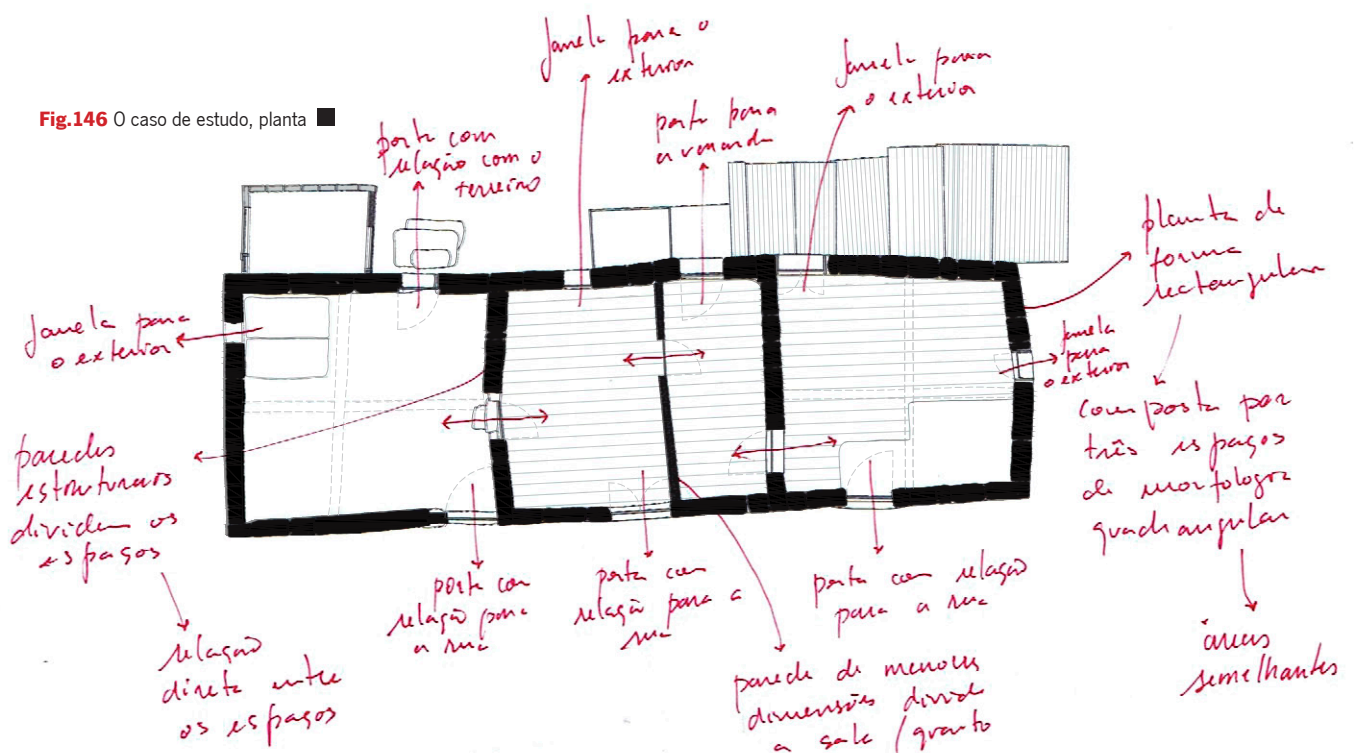 Fig.146 O caso de estudo, planta
janela para o
exterior
janela para
o exterior
porta com
relação com o
terreiro
porta para
a varanda
planta de
forma
rectangular
janela para
o exterior
janela
para
o exterior
composta por
três espaços
de morfologia
quadrangular
áreas
semelhantes
paredes
estruturais
dividem os
espaços
relação
direta entre
os espaços
porta com
relação para
a rua
porta com
relação para a
rua
porta com relação
para a rua
parede de menores
dimensões divide
a sala / quarto